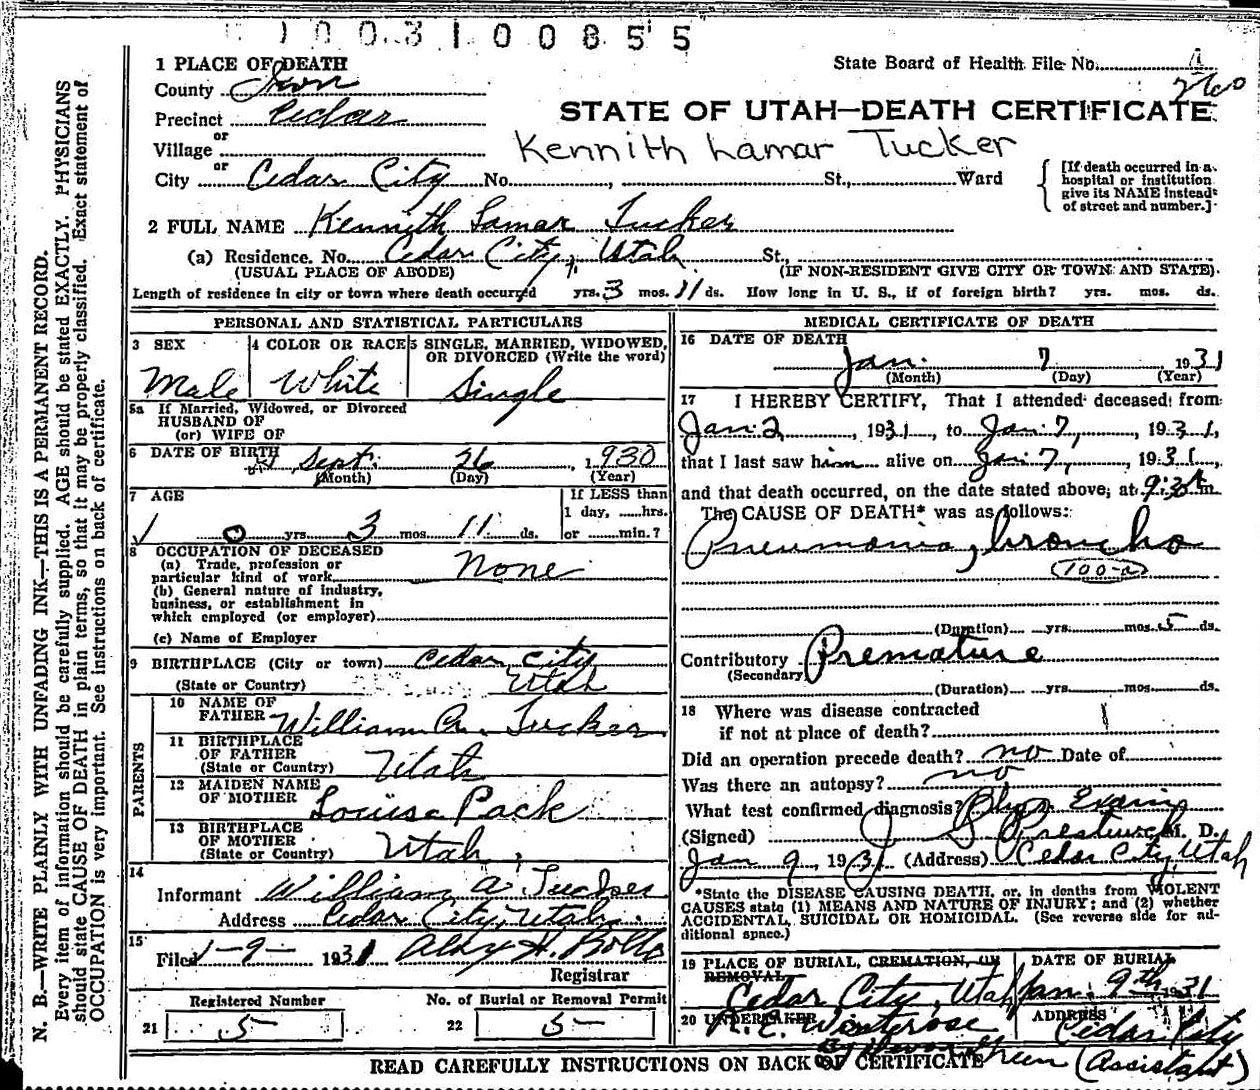 1003100855
1 PLACE OF DEATH
State Board of Health File No. 2
County Iron
260
Precinct Cedar
STATE OF UTAH—DEATH CERTIFICATE
or
Village
Kennith Lamar Tucker
or
City Cedar City No. , St., Ward
[If death occurred in a hospital or institution give its NAME instead of street and number.]
2 FULL NAME Kennith Lamar Tucker
(a) Residence. No. Cedar City, Utah St.,
(USUAL PLACE OF ABODE) (IF NON-RESIDENT GIVE CITY OR TOWN AND STATE)
Length of residence in city or town where death occurred yrs. 3 mos. 11 ds. How long in U. S., if of foreign birth? yrs. mos. ds.
PERSONAL AND STATISTICAL PARTICULARS
3 SEX
Male
4 COLOR OR RACE
White
5 SINGLE, MARRIED, WIDOWED, OR DIVORCED (Write the word)
Single
5a If Married, Widowed, or Divorced
HUSBAND OF
(or) WIFE OF
6 DATE OF BIRTH Sept. 26, 1930
(Month) (Day) (Year)
7 AGE
0 yrs. 3 mos. 11 ds.
If LESS than
1 day, ......hrs.
or ......min.?
8 OCCUPATION OF DECEASED
(a) Trade, profession or
particular kind of work None
(b) General nature of industry,
business, or establishment in
which employed (or employer)
(c) Name of Employer
9 BIRTHPLACE (City or town) Cedar City
(State or Country) Utah
PARENTS
10 NAME OF
FATHER William A. Tucker
11 BIRTHPLACE
OF FATHER
(State or Country) Utah
12 MAIDEN NAME
OF MOTHER Louise Pack
13 BIRTHPLACE
OF MOTHER
(State or Country) Utah
14
Informant William A. Tucker
Address Cedar City, Utah.
15
Filed 1-9- 1931
Registrar
Registered Number
21 5-
No. of Burial or Removal Permit
22 5-
MEDICAL CERTIFICATE OF DEATH
16 DATE OF DEATH
Jan. 7 1931
(Month) (Day) (Year)
17 I HEREBY CERTIFY, That I attended deceased from
Jan. 2, 1931, to Jan. 7, 1931,
that I last saw him alive on Jan 7, 1931,
and that death occurred, on the date stated above, at 9:30 m.
The CAUSE OF DEATH* was as follows:
Pneumonia, broncho
100-a
(Duration) yrs. mos. 5 ds.
Contributory Premature
(Secondary)
(Duration) yrs. mos. ds.
18 Where was disease contracted
if not at place of death?
Did an operation precede death? no Date of
Was there an autopsy? no
What test confirmed diagnosis? Phys Exam
(Signed) Prestwich M. D.
Jan 9, 1931 (Address) Cedar City, Utah
*State the DISEASE CAUSING DEATH, or, in deaths from VIOLENT
CAUSES state (1) MEANS AND NATURE OF INJURY; and (2) whether
ACCIDENTAL, SUICIDAL OR HOMICIDAL. (See reverse side for ad-
ditional space.)
19 PLACE OF BURIAL, CREMATION, OR
REMOVAL
Cedar City, Utah
DATE OF BURIAL
Jan. 9th 1931
20 UNDERTAKER
Winterose
Green (Assistant)
ADDRESS
Cedar City
READ CAREFULLY INSTRUCTIONS ON BACK OF CERTIFICATE
N. B.—WRITE PLAINLY WITH UNFADING INK—THIS IS A PERMANENT RECORD.
Every item of information should be carefully supplied. AGE should be stated EXACTLY. PHYSICIANS
should state CAUSE OF DEATH in plain terms, so that it may be properly classified. Exact statement of
OCCUPATION is very important. See instructions on back of certificate.